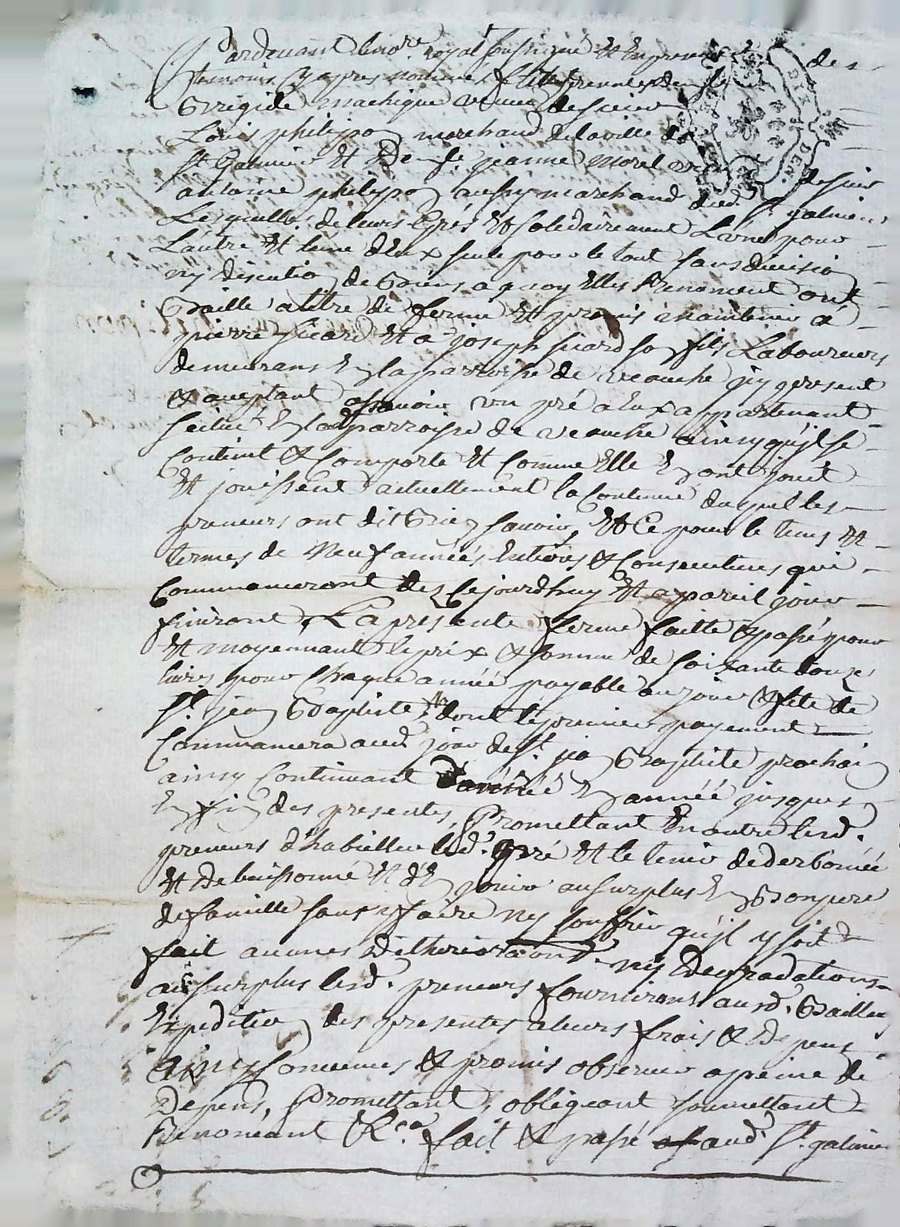 Pardevant le no.re royal soussigné et en presence de
temoins cy apres nommés furent presentes De.lle
Brigide machique veuve de sieur
Louis philipo marchand de la ville de
st Galmier et De.lle jeanne morel veuve de sieur
antoine philipo aussy marchand dud. st galmier
Lesquelles de leurs grés et solidairement L'une pour
Lautre et l'une d'eux seule pour le tout sans division
ny discution de biens a quoy elles Renoncent ont
Baille a titre de ferme et promis maintenir a
pierre sicard et a joseph sicard son fils Laboureurs
demeurans en la parroisse de veauche icy present
et acceptant assavoir un pré a eux appartenant
scitué en la parroisse de veauche ainsy qu'il se
Contient et Comporte et Comme elle en ont jouit
et jouissent actuellement la Contenue duquel les
preneurs ont dit bien savoir, et Ce pour le tems et
termes de Neuf années Entieres et Consecutives qui
Commanceront des Cejourdhuy et a pareil jour
finiront La presente ferme faitte et passé pour
et moyennant le prix et somme de soixante douze
livres pour Chaque année payable au jour et fete de
st. jean Baptiste, dont le premier payement
Commancera aud. jour de st. jean Baptiste prochain
ainsy Continuant d'année en année jusques
En fin des presentes, Promettant En outre lesd.
preneurs d'habiller led. pré et le tenir
et debuissonné et d'en jouir au surplus En Bon pere
de famille sans y faire ny souffrir qu'il y soit
fait aucunes détheriorations ny Dégradations
au surplus lesd. preneurs fourniront aud. Bailleurs
Expedition des presentes a leurs frais et depens
ainsy Convenus et promis observer a peine de
Depens, Promettant, obligeant soumettant
Renonceant &.ca fait et passé aud. st. galmier